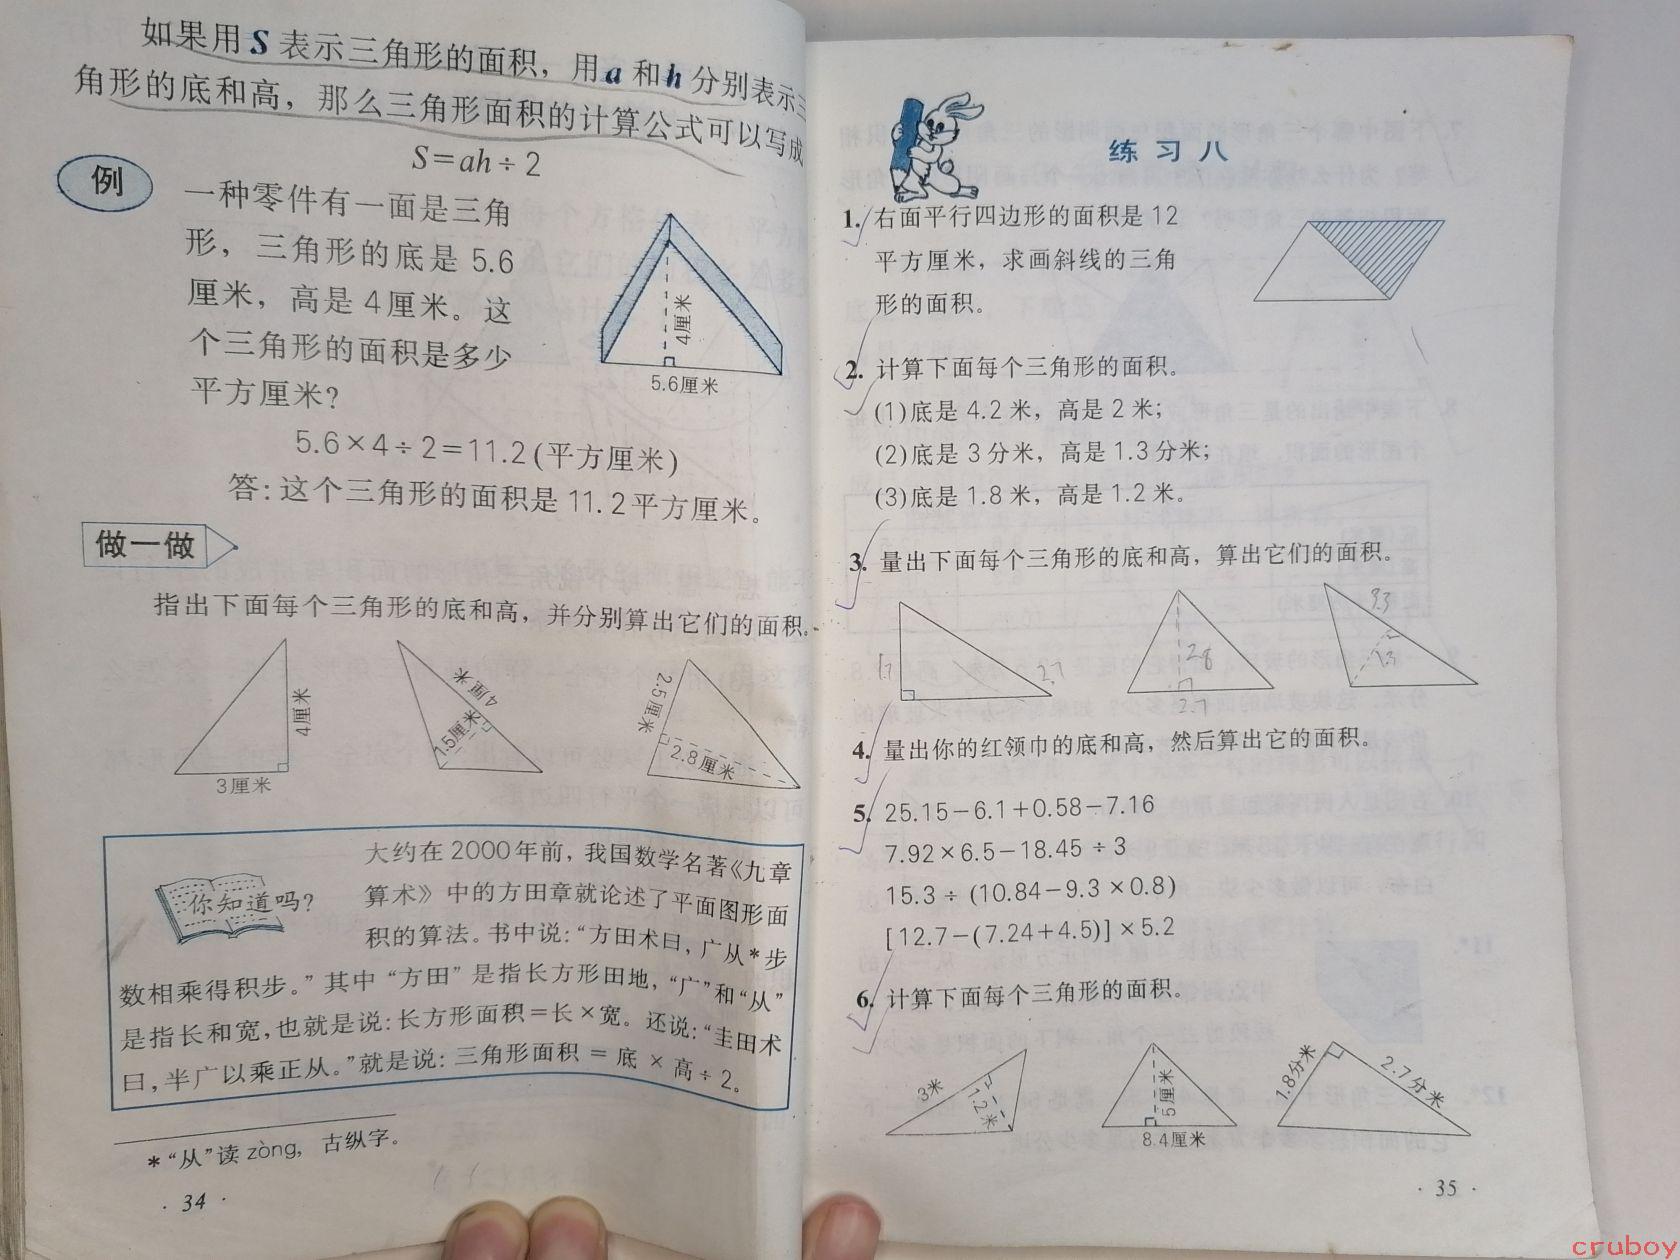 如果用S表示三角形的面积，用a和h分别表示三
角形的底和高，那么三角形面积的计算公式可以写成
S=ah÷2
例
一种零件有一面是三角
形，三角形的底是5.6
厘米，高是4厘米。这
个三角形的面积是多少
平方厘米？
4厘米
5.6厘米
5.6×4÷2=11.2(平方厘米)
答：这个三角形的面积是11.2平方厘米。
做一做
指出下面每个三角形的底和高，并分别算出它们的面积。
4厘米
3厘米
4厘米
1.5厘米
2.5厘米
2.8厘米
你知道吗？
大约在2000年前，我国数学名著《九章
算术》中的方田章就论述了平面图形面
积的算法。书中说：“方田术曰，广从*步
数相乘得积步。”其中“方田”是指长方形田地，“广”和“从”
是指长和宽，也就是说：长方形面积＝长×宽。还说：“圭田术
曰，半广以乘正从。”就是说：三角形面积＝底×高÷2。
*“从”读zòng，古纵字。
·34·
练习八
1. 右面平行四边形的面积是12
平方厘米，求画斜线的三角
形的面积。
2. 计算下面每个三角形的面积。
(1)底是4.2米，高是2米；
(2)底是3分米，高是1.3分米；
(3)底是1.8米，高是1.2米。
3. 量出下面每个三角形的底和高，算出它们的面积。
1.7
2.7
28
2.7
4. 量出你的红领巾的底和高，然后算出它的面积。
5. 25.15−6.1+0.58−7.16
7.92×6.5−18.45÷3
15.3÷(10.84−9.3×0.8)
[12.7−(7.24+4.5)]×5.2
6. 计算下面每个三角形的面积。
3米
1.2米
5厘米
8.4厘米
1.8分米
2.7分米
·35·
cruboy